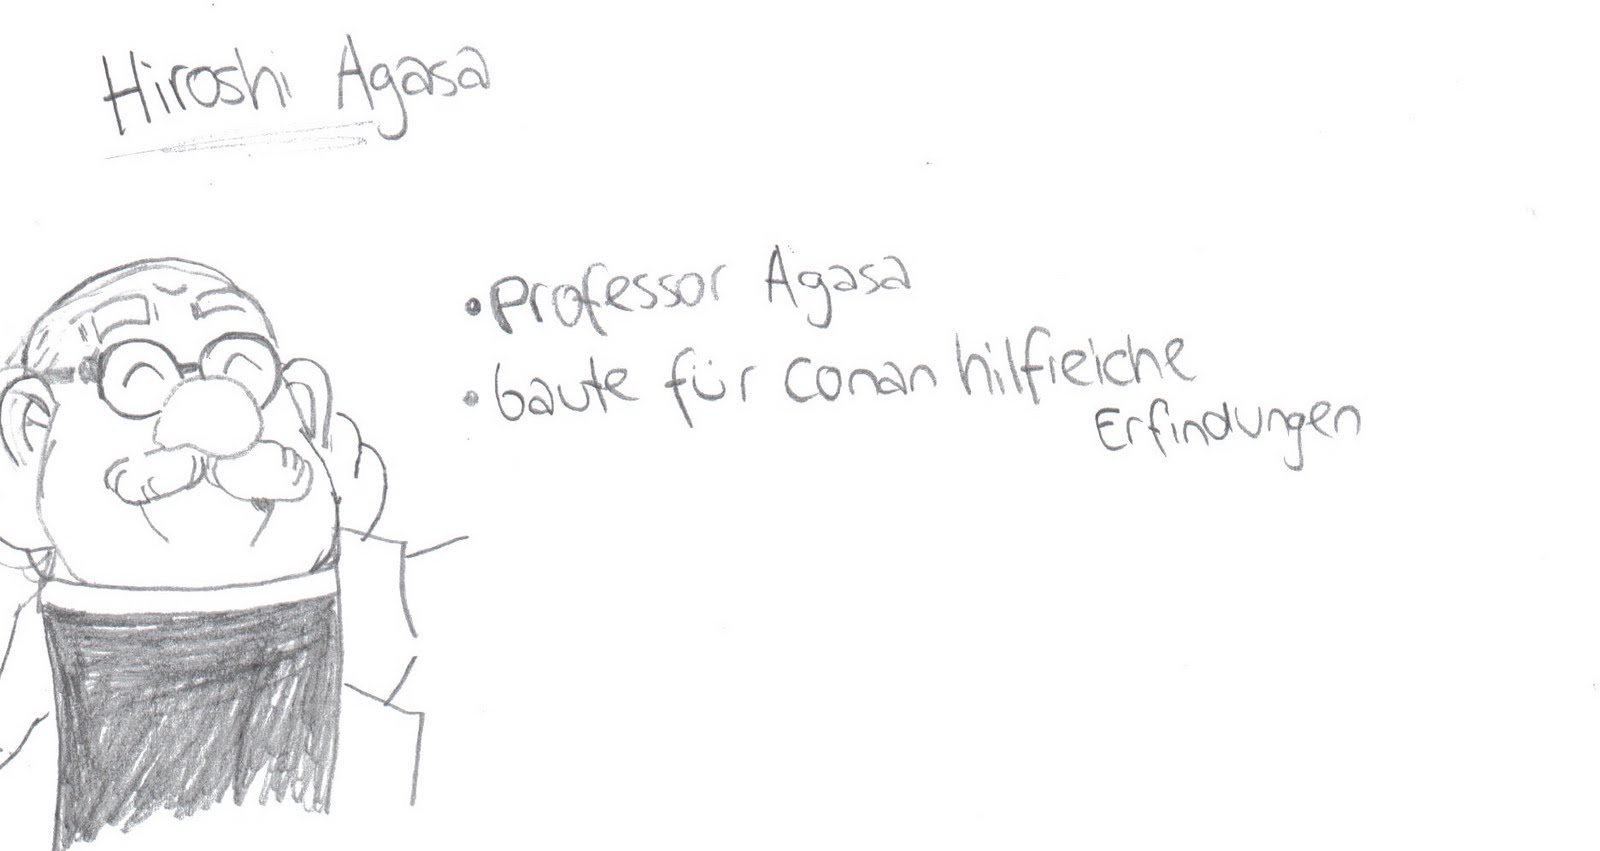 Hiroshi Agasa
• Professor Agasa
• baute für Conan hilfreiche
Erfindungen